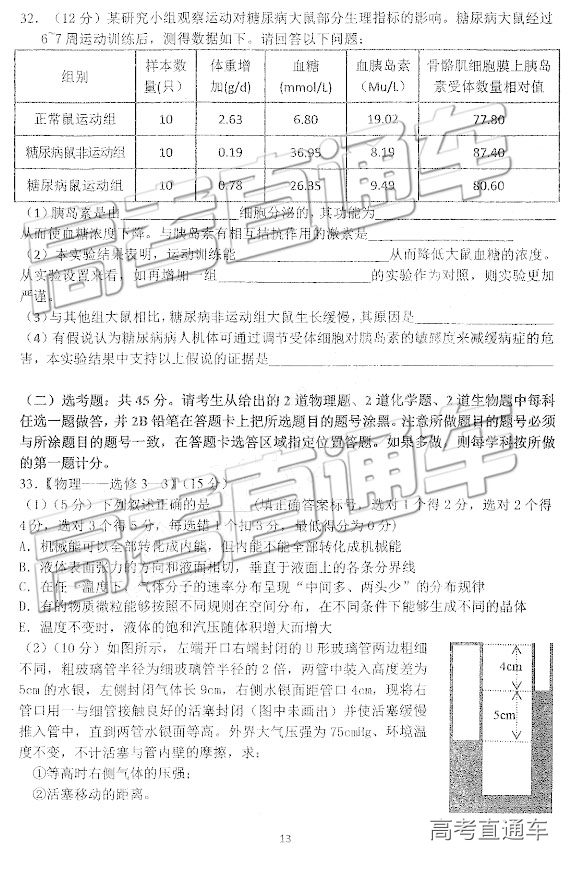 32.（12分）某研究小组观察运动对糖尿病大鼠部分生理指标的影响。糖尿病大鼠经过
6~7周运动训练后，测得数据如下。请回答以下问题：
组别 样本数量(只) 体重增加(g/d) 血糖(mmol/L) 血胰岛素(Mu/L) 骨骼肌细胞膜上胰岛素受体数量相对值
正常鼠运动组 10 2.63 6.80 19.02 77.80
糖尿病鼠非运动组 10 0.19 36.95 8.19 87.40
糖尿病鼠运动组 10 0.78 26.35 9.49 80.60
（1）胰岛素是由____________细胞分泌的，其功能为____________
从而使血糖浓度下降。与胰岛素有相互拮抗作用的激素是____________
（2）本实验结果表明，运动训练能____________从而降低大鼠血糖的浓度。
从实验设置来看，如再增加一组____________的实验作为对照，则实验更加
严谨。
（3）与其他组大鼠相比，糖尿病非运动组大鼠生长缓慢，其原因是____________
（4）有假说认为糖尿病病人机体可通过调节受体细胞对胰岛素的敏感度来减缓病症的危
害，本实验结果中支持以上假说的证据是____________
（二）选考题：共45分。请考生从给出的2道物理题、2道化学题、2道生物题中每科
任选一题做答，并2B铅笔在答题卡上把所选题目的题号涂黑。注意所做题目的题号必须
与所涂题目的题号一致，在答题卡选答区域指定位置答题。如果多做，则每学科按所做
的第一题计分。
33.【物理——选修3—3】（15分）
（1）（5分）下列叙述正确的是____（填正确答案标号，选对1个得2分，选对2个得
4分，选对3个得5分，每选错1个扣3分，最低得分为0分）
A．机械能可以全部转化成内能，但内能不能全部转化成机械能
B．液体表面张力的方向和液面相切，垂直于液面上的各条分界线
C．在任一温度下，气体分子的速率分布呈现“中间多、两头少”的分布规律
D．有的物质微粒能够按照不同规则在空间分布，在不同条件下能够生成不同的晶体
E．温度不变时，液体的饱和汽压随体积增大而增大
（2）（10分）如图所示，左端开口右端封闭的U形玻璃管两边粗细
不同，粗玻璃管半径为细玻璃管半径的2倍，两管中装入高度差为
5cm的水银，左侧封闭气体长9cm，右侧水银面距管口4cm，现将右
管口用一与细管接触良好的活塞封闭（图中未画出）并使活塞缓慢
推入管中，直到两管水银面等高。外界大气压强为75cmHg、环境温
度不变，不计活塞与管内壁的摩擦，求：
①等高时右侧气体的压强；
②活塞移动的距离。
4cm
5cm
13
高考直通车
高考直通车
高考直通车